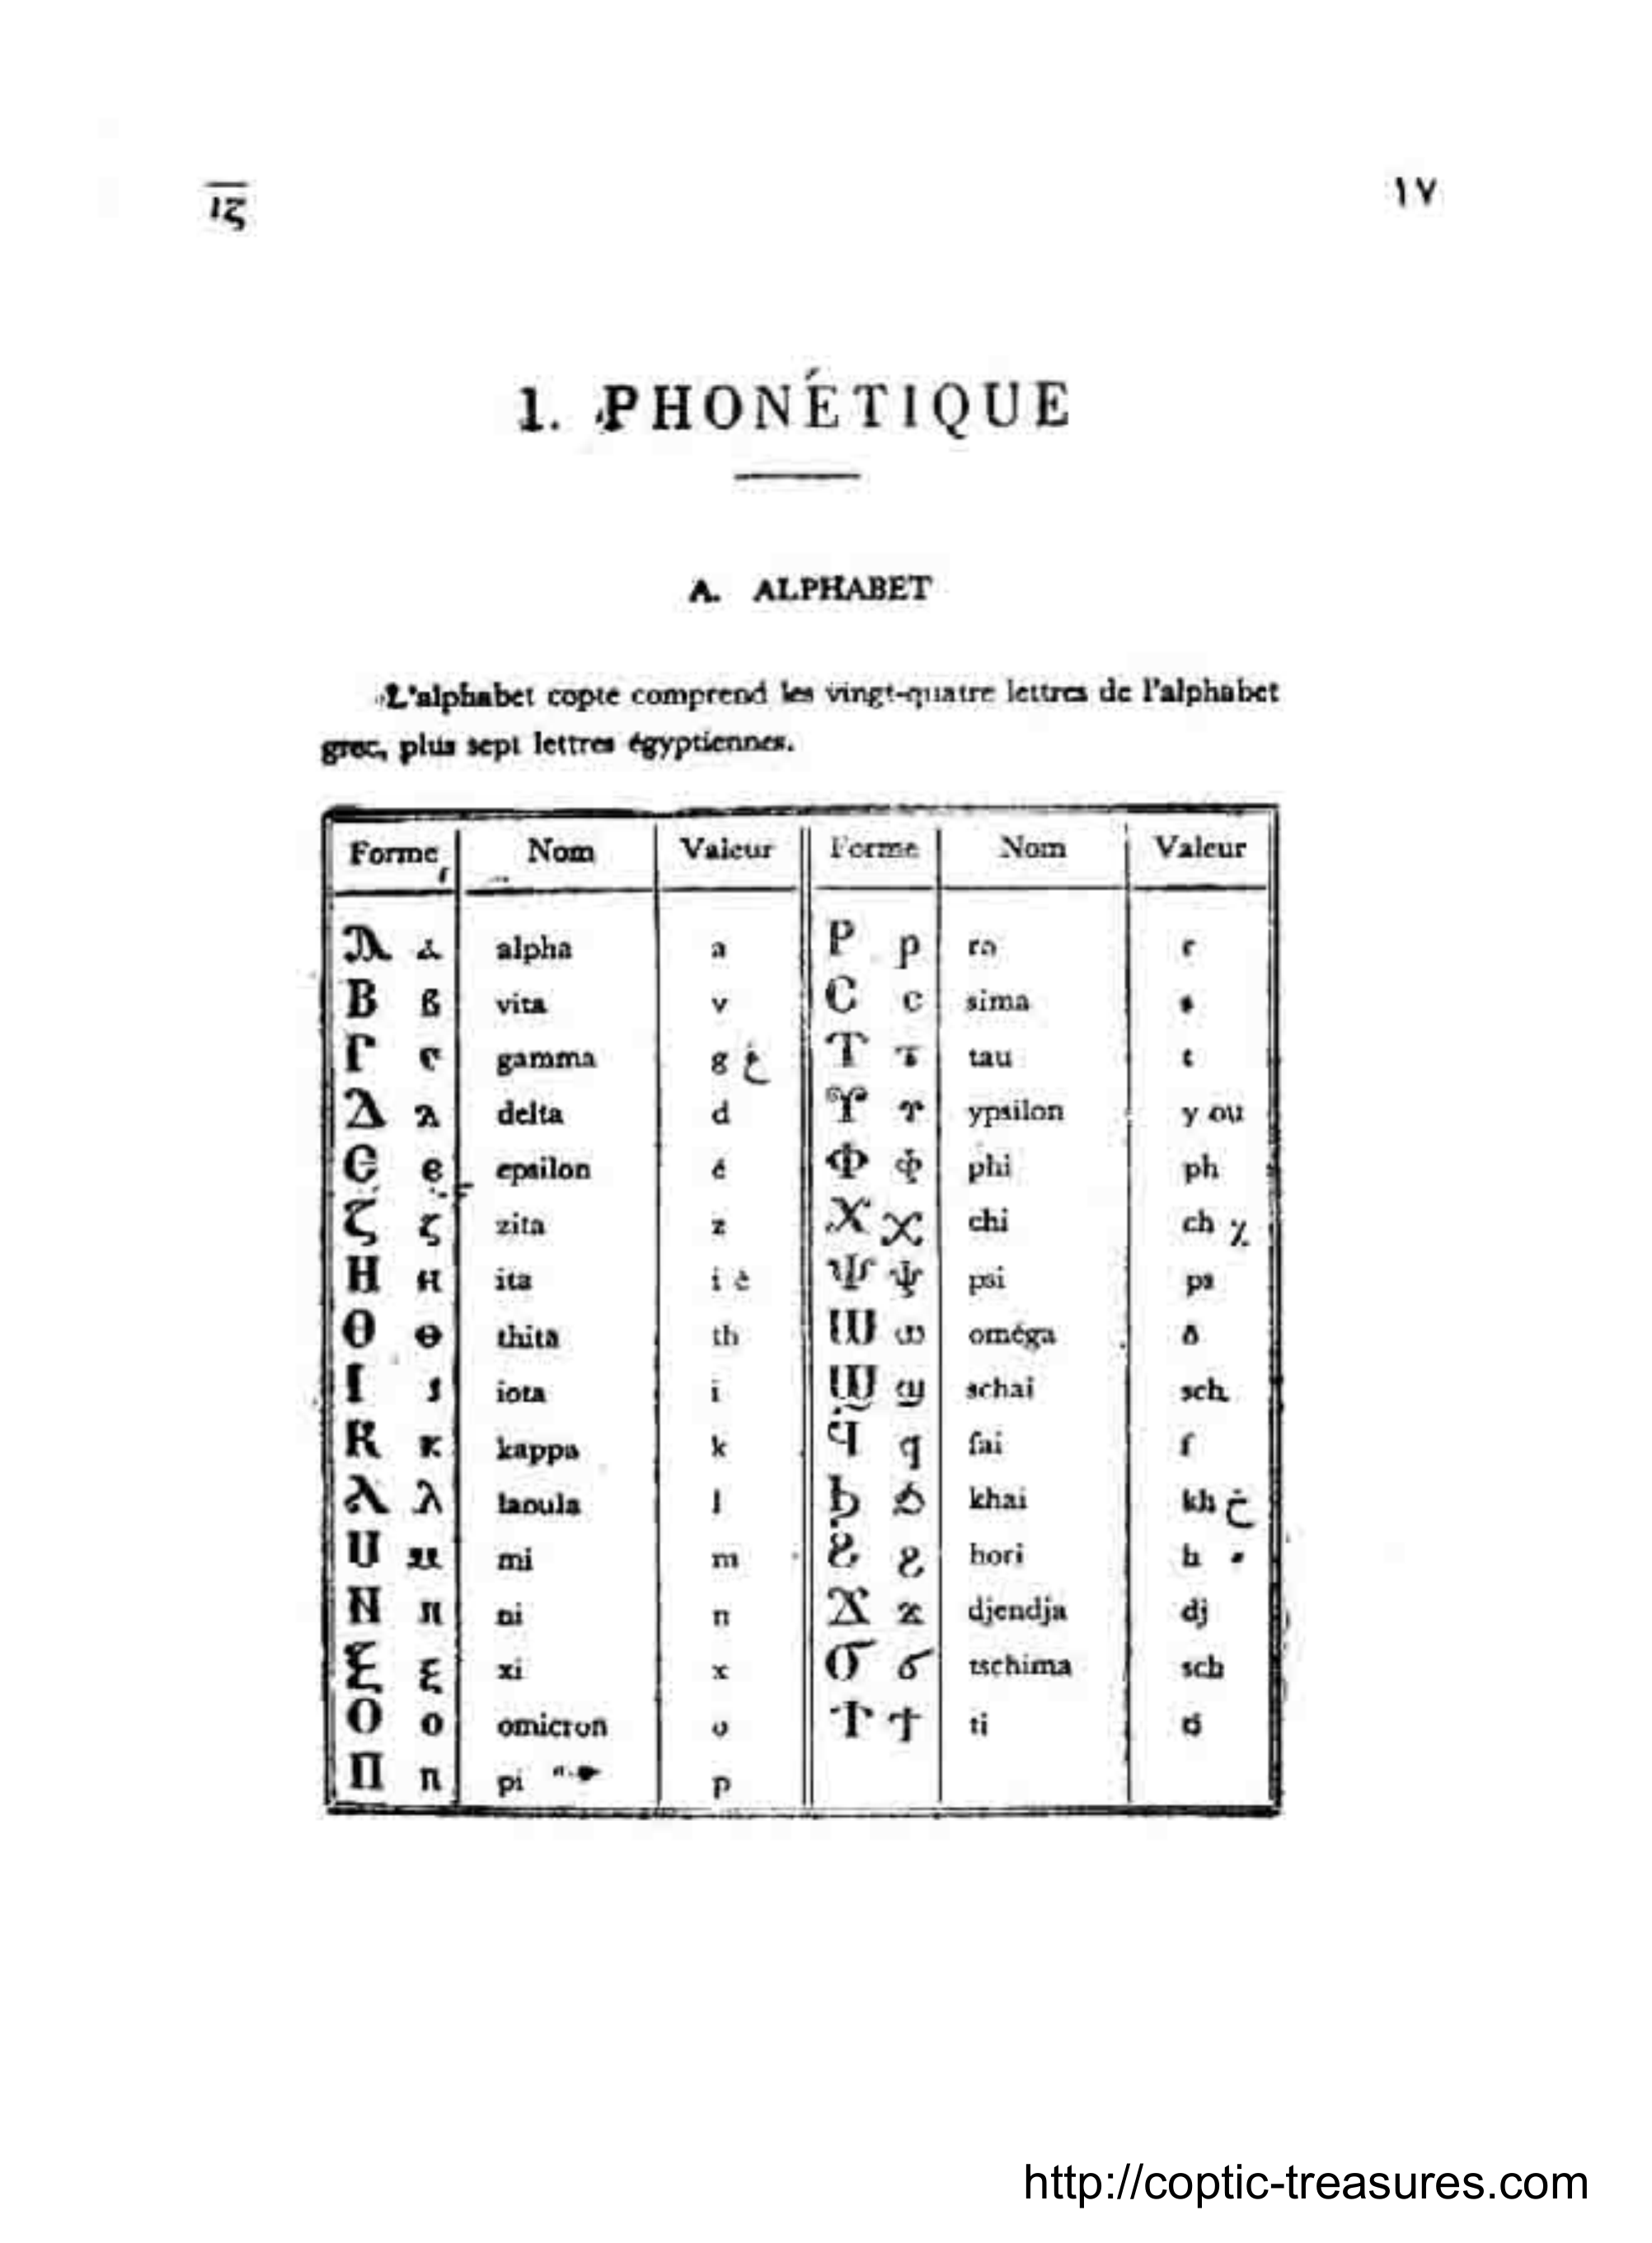 ⲓ̅ⲍ̅ ١٧
1. PHONÉTIQUE
A. ALPHABET
L'alphabet copte comprend les vingt-quatre lettres de l'alphabet
grec, plus sept lettres égyptiennes.
Forme Nom Valeur Forme Nom Valeur
Ⲁ ⲁ alpha a Ⲣ ⲣ ro r
Ⲃ ⲃ vita v Ⲥ ⲥ sima s
Ⲅ ⲅ gamma g غ Ⲧ ⲧ tau t
Ⲇ ⲇ delta d Ⲩ ⲩ ypsilon y ou
Ⲉ ⲉ epsilon é Ⲫ ⲫ phi ph
Ⲍ ⲍ zita z Ⲭ ⲭ chi ch χ
Ⲏ ⲏ ita i è Ⲯ ⲯ psi ps
Ⲑ ⲑ thita th Ⲱ ⲱ oméga ô
Ⲓ ⲓ iota i Ϣ ϣ schai sch
Ⲕ ⲕ kappa k Ϥ ϥ fai f
Ⲗ ⲗ laoula l Ϧ ϧ khai kh خ
Ⲙ ⲙ mi m Ϩ ϩ hori h
Ⲛ ⲛ ni n Ϫ ϫ djendja dj
Ⲝ ⲝ xi x Ϭ ϭ tschima sch
Ⲟ ⲟ omicron o Ϯ ϯ ti
Ⲡ ⲡ pi p
http://coptic-treasures.com